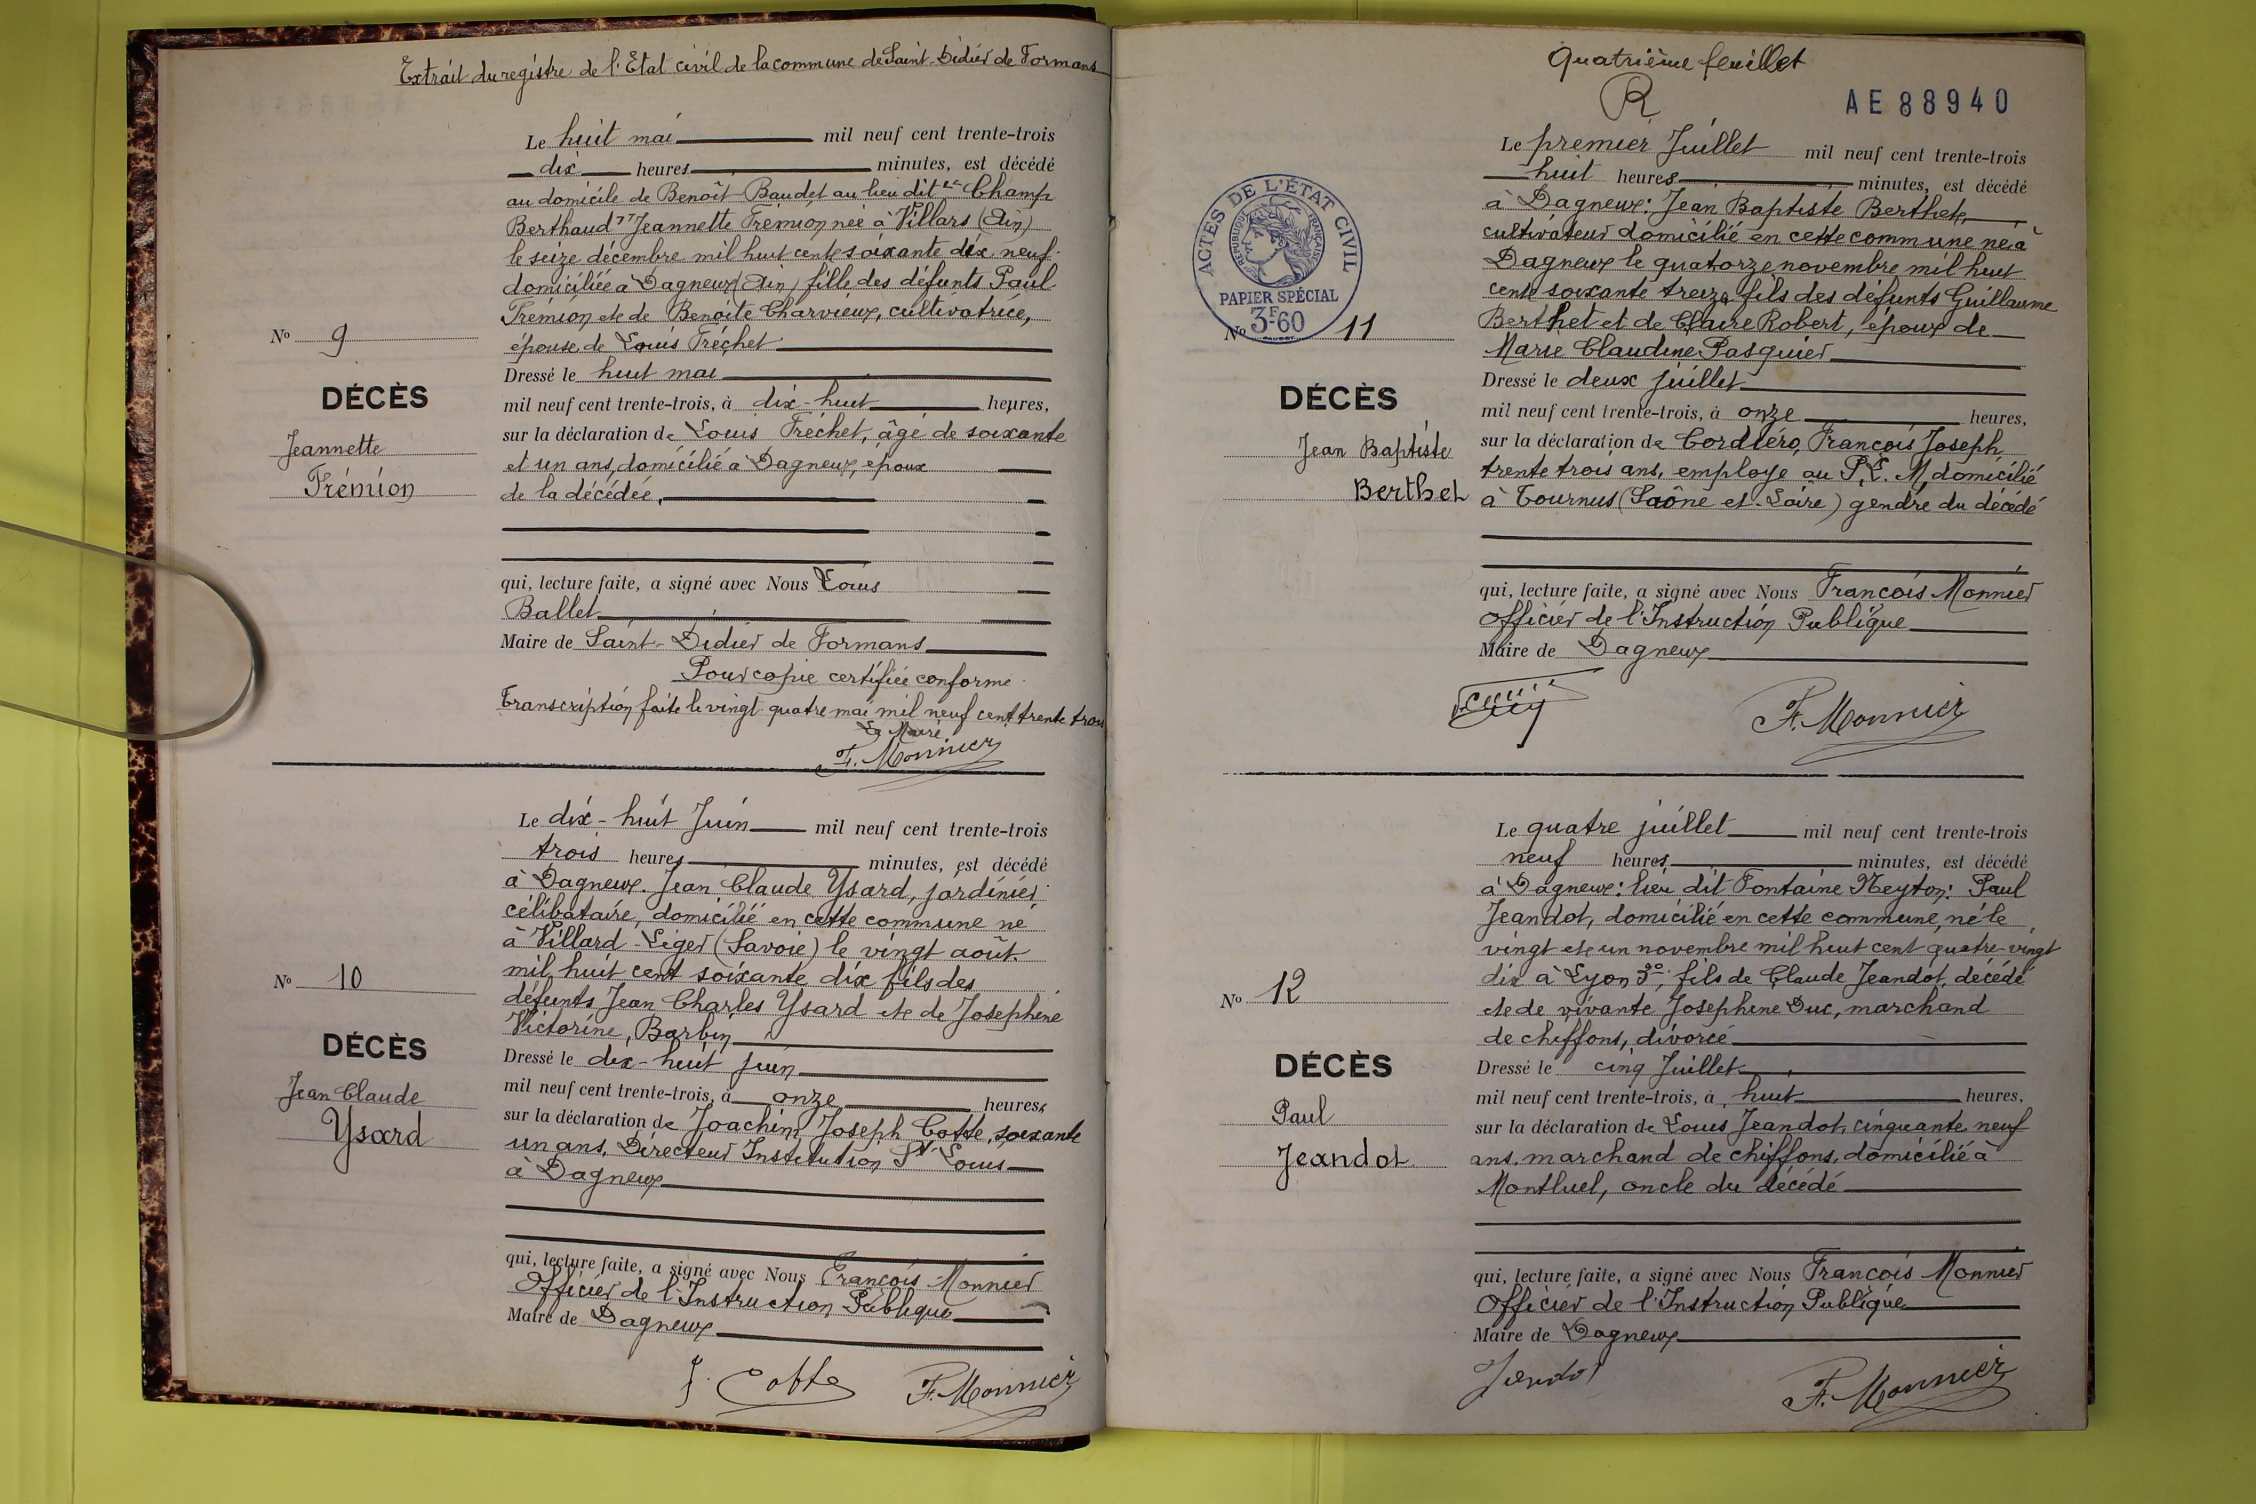 Extrait du registre de l'Etat civil de la commune de Saint-Didier de Formans
Le huit mai mil neuf cent trente-trois
dix heures minutes, est décédé
au domicile de Benoît Baudet au lieu dit "Champ
Berthaud" Jeannette Frémion née à Villars (Ain)
le seize décembre mil huit cent soixante dix neuf
domiciliée à Dagneux (Ain) fille des défunts Paul
Frémion et de Benoîte Charvieux, cultivatrice,
épouse de Louis Fréchet
No 9
DÉCÈS
Jeannette
Frémion
Dressé le huit mai
mil neuf cent trente-trois, à dix-huit heures,
sur la déclaration de Louis Fréchet, âgé de soixante
et un ans, domicilié à Dagneux, époux
de la décédée,
qui, lecture faite, a signé avec Nous Louis
Ballet
Maire de Saint-Didier de Formans
Pour copie certifiée conforme
Transcription faite le vingt quatre mai mil neuf cent trente trois
Le Maire
F. Monnier
Le dix-huit Juin mil neuf cent trente-trois
trois heures minutes, est décédé
à Dagneux. Jean Claude Ysard, jardinier
célibataire, domicilié en cette commune né
à Villard-Léger (Savoie) le vingt août
mil huit cent soixante dix fils des
défunts Jean Charles Ysard et de Josephine
Victorine, Barbin
No 10
DÉCÈS
Jean Claude
Ysard
Dressé le dix-huit juin
mil neuf cent trente-trois, à onze heures,
sur la déclaration de Joachim Joseph Cotte, soixante
un ans, Directeur Institution St. Louis
à Dagneux
qui, lecture faite, a signé avec Nous François Monnier
Officier de l'Instruction Publique
Maire de Dagneux
J. Cotte F. Monnier
Quatrième feuillet
R
AE 88940
ACTES DE L'ÉTAT CIVIL
RÉPUBLIQUE FRANÇAISE
PAPIER SPÉCIAL
3F60
Le premier Juillet mil neuf cent trente-trois
huit heures minutes, est décédé
à Dagneux: Jean Baptiste Berthet,
cultivateur domicilié en cette commune né à
Dagneux le quatorze novembre mil huit
cent soixante treize fils des défunts Guillaume
Berthet et de Claire Robert, époux de
Marie Claudine Pasquier
No 11
DÉCÈS
Jean Baptiste
Berthet
Dressé le deux juillet
mil neuf cent trente-trois, à onze heures,
sur la déclaration de Cordiéro, François Joseph
trente trois ans, employe au P. L. M, domicilié
à Tournus (Saône et-Loire) gendre du décédé
qui, lecture faite, a signé avec Nous François Monnier
Officier de l'Instruction Publique
Maire de Dagneux
F. Monnier
Le quatre juillet mil neuf cent trente-trois
neuf heures minutes, est décédé
à Dagneux: lieu dit Fontaine Neyton: Paul
Jeandot, domicilié en cette commune, né le
vingt et un novembre mil huit cent quatre-vingt
dix à Lyon 3°, fils de Claude Jeandot, décédé
et de vivante Josephine Duc, marchand
de chiffons, divorcé
No 12
DÉCÈS
Paul
Jeandot
Dressé le cinq Juillet
mil neuf cent trente-trois, à huit heures,
sur la déclaration de Louis Jeandot, cinquante neuf
ans, marchand de chiffons, domicilié à
Montluel, oncle du décédé
qui, lecture faite, a signé avec Nous François Monnier
Officier de l'Instruction Publique
Maire de Dagneux
Jendot F. Monnier